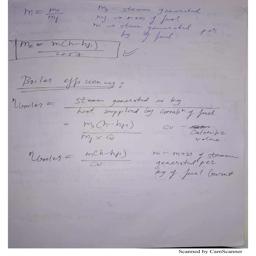 m = ms/mf
ms → steam generated
mf → mass of fuel
m → steam generated per
kg of fuel
me = m(h-hf1)/2257
Boiler efficiency:
ηboiler = steam generated in kg
heat supplied by comb^n of fuel
= ms(h-hf1)/mf × Cv
Cv → Calorific value
ηboiler = m(h-hf1)/Cv
m → mass of steam
generated per
kg of fuel
Scanned by CamScanner